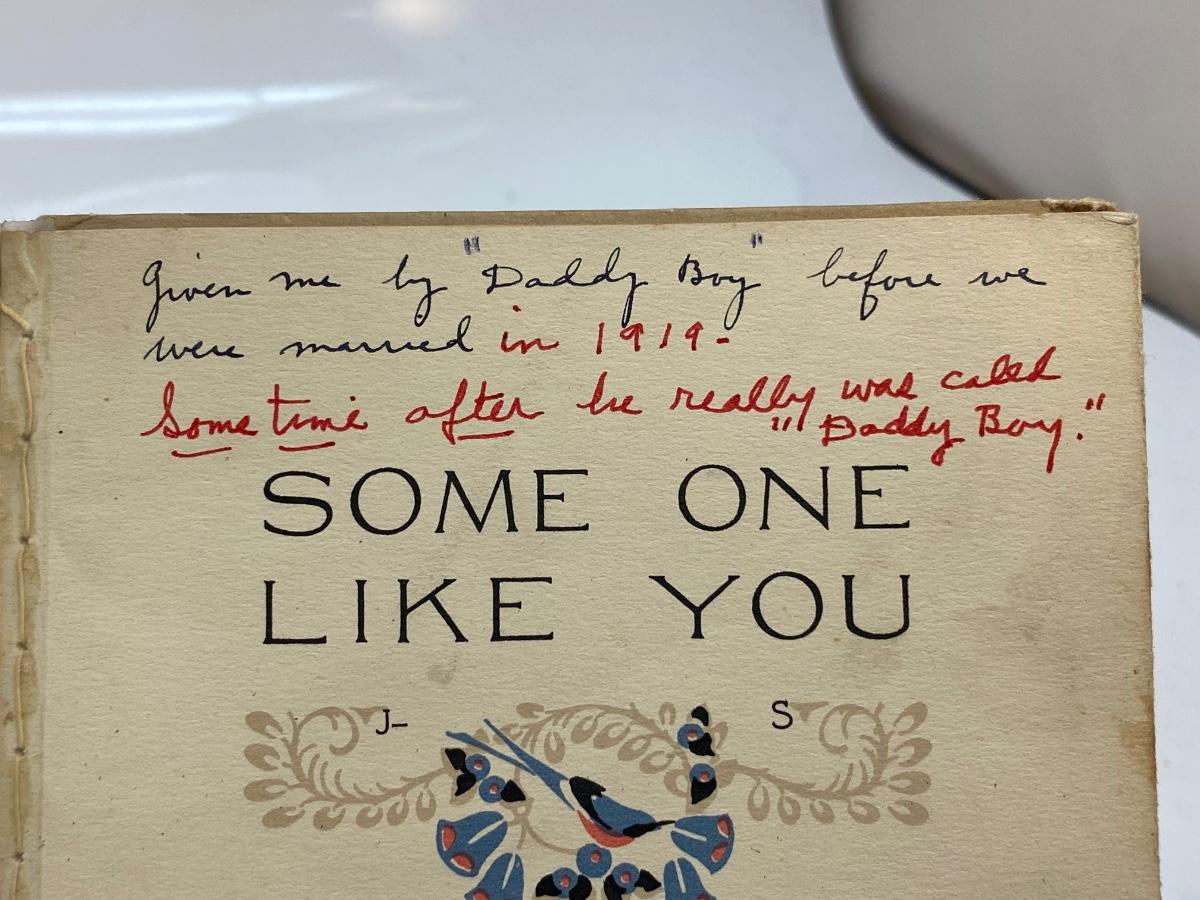 Given me by "Daddy Boy" before we
were married in 1919-
Some time after he really was caled
"Daddy Boy."
SOME ONE
LIKE YOU
J- S